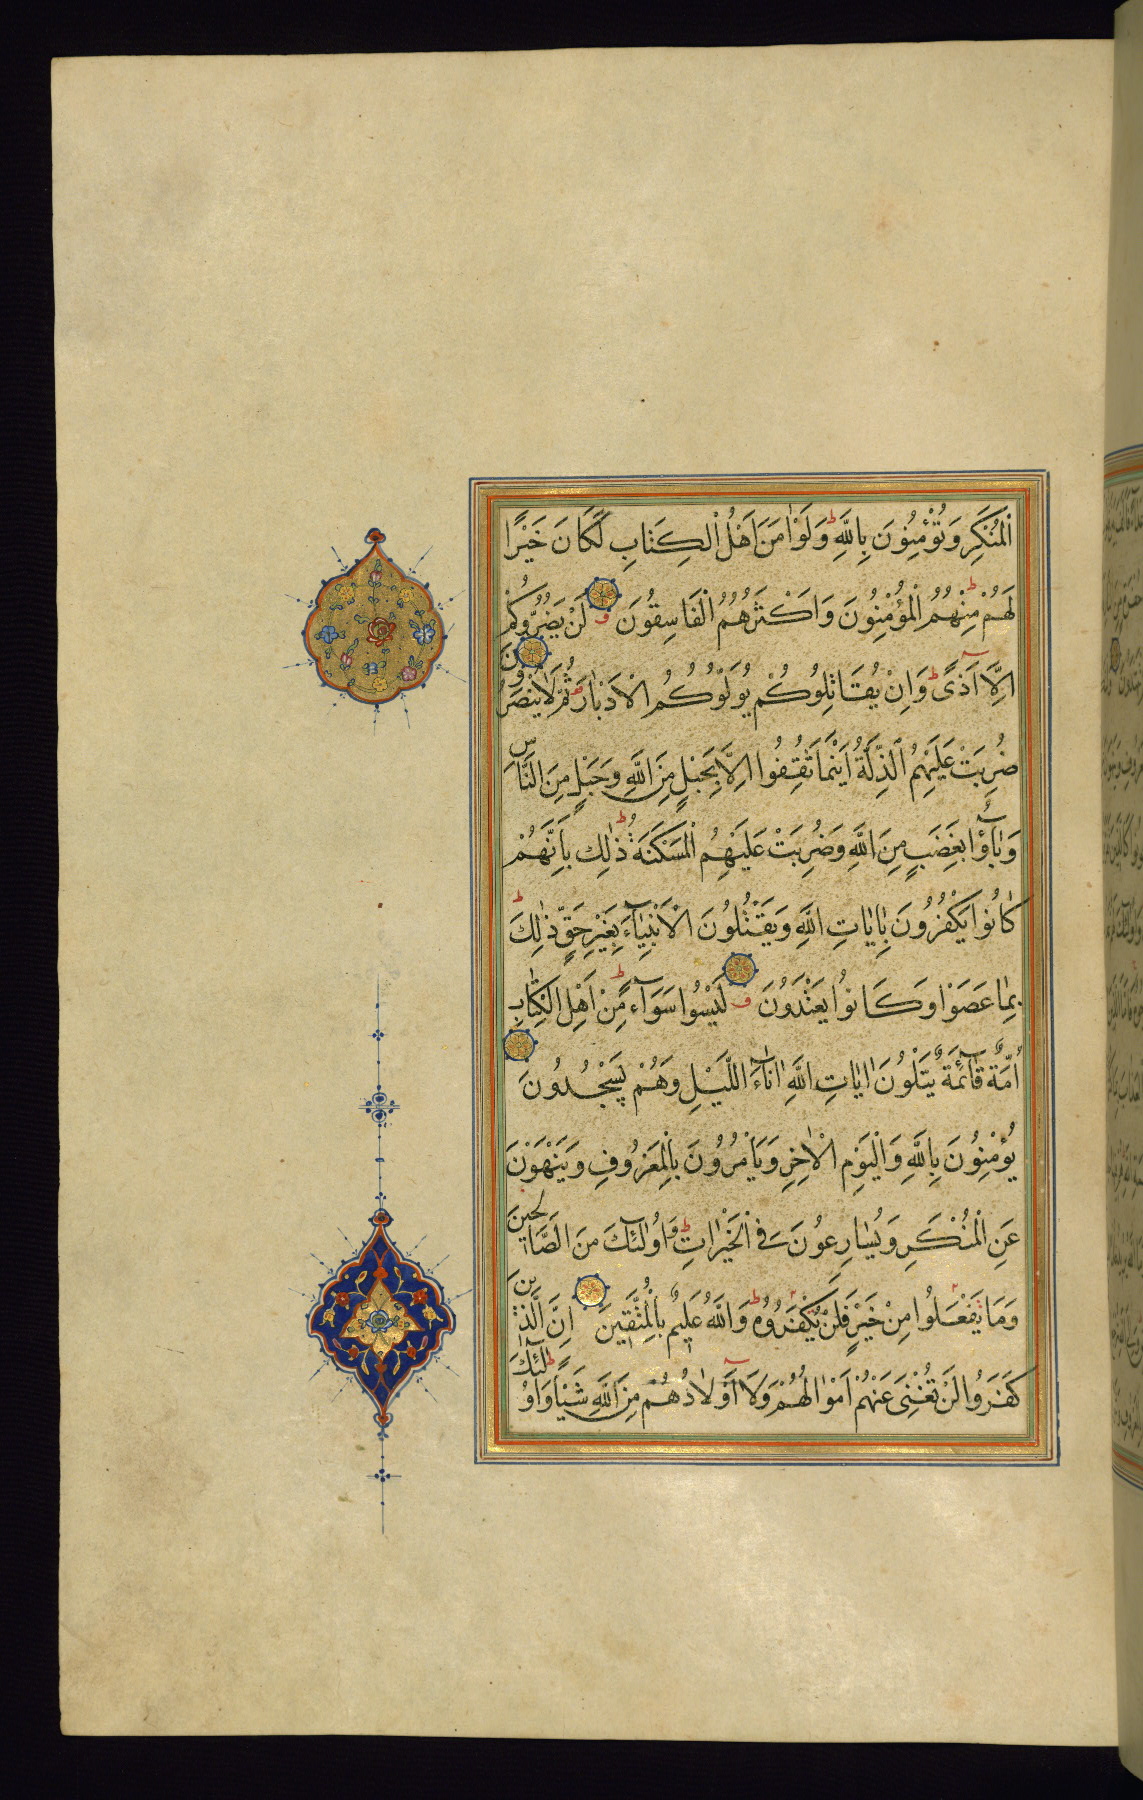 اَلْمُنْكَرِ وَتُؤْمِنُونَ بِاللّٰهِ ط وَلَوْ اٰمَنَ اَهْلُ الْكِتَابِ لَكَانَ خَيْرًا
لَهُمْ ط مِنْهُمُ الْمُؤْمِنُونَ وَاَكْثَرُهُمُ الْفَاسِقُونَ لَنْ يَضُرُّوكُمْ
اِلَّا اَذًى ط وَاِنْ يُقَاتِلُوكُمْ يُوَلُّوكُمُ الْاَدْبَارَ ثُمَّ لَا يُنْصَرُونَ
ضُرِبَتْ عَلَيْهِمُ الذِّلَّةُ اَيْنَمَا ثُقِفُوا اِلَّا بِحَبْلٍ مِنَ اللّٰهِ وَحَبْلٍ مِنَ النَّاسِ
وَبَاؤُا بِغَضَبٍ مِنَ اللّٰهِ وَضُرِبَتْ عَلَيْهِمُ الْمَسْكَنَةُ ط ذٰلِكَ بِاَنَّهُمْ
كَانُوا يَكْفُرُونَ بِاٰيَاتِ اللّٰهِ وَيَقْتُلُونَ الْاَنْبِيَاءَ بِغَيْرِ حَقٍّ ط ذٰلِكَ
بِمَا عَصَوْا وَكَانُوا يَعْتَدُونَ لَيْسُوا سَوَاءً ط مِنْ اَهْلِ الْكِتَابِ
اُمَّةٌ قَائِمَةٌ يَتْلُونَ اٰيَاتِ اللّٰهِ اٰنَاءَ اللَّيْلِ وَهُمْ يَسْجُدُونَ
يُؤْمِنُونَ بِاللّٰهِ وَالْيَوْمِ الْاٰخِرِ وَيَاْمُرُونَ بِالْمَعْرُوفِ وَيَنْهَوْنَ
عَنِ الْمُنْكَرِ وَيُسَارِعُونَ فِي الْخَيْرَاتِ ط وَاُولٰئِكَ مِنَ الصَّالِحِينَ
وَمَا يَفْعَلُوا مِنْ خَيْرٍ فَلَنْ يُكْفَرُوهُ ط وَاللّٰهُ عَلِيمٌ بِالْمُتَّقِينَ اِنَّ الَّذِينَ
كَفَرُوا لَنْ تُغْنِيَ عَنْهُمْ اَمْوَالُهُمْ وَلَا اَوْلَادُهُمْ مِنَ اللّٰهِ شَيْـًٔا ط وَاُولٰئِكَ